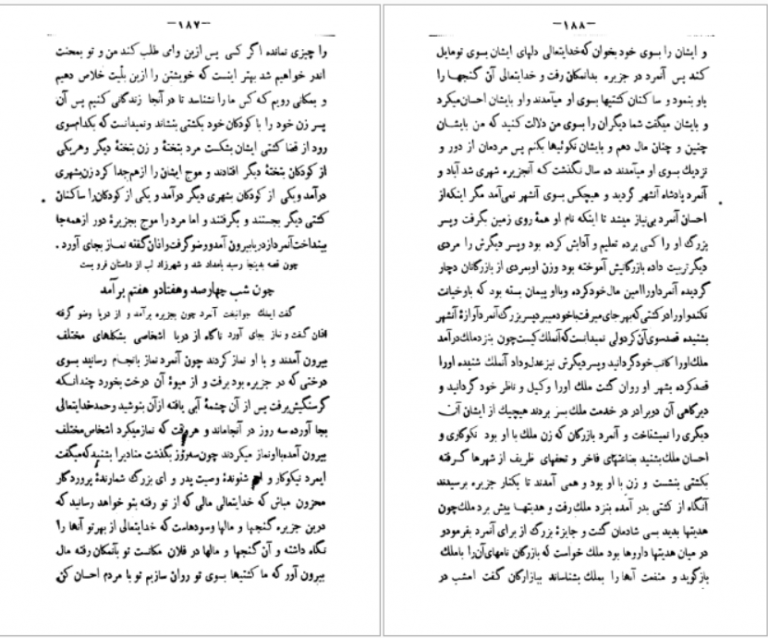 -۱۸۷-
را چیزی نمانده اگر کسی پس ازین وامی طلب کند من و تو بمحنت
اندر خواهیم شد بهتر اینست که خویشتن را ازین بلیت خلاص دهیم
و بمکانی رویم که کس ما را نشناسد تا در آنجا زندگانی کنیم پس آن
پسر زن خود را با کودکان خود بکشتی بنشاند و نمیدانست که بکدام سوی
رود از قضا کشتی ایشان بشکست مرد بتختهٔ و زن بتختهٔ دیگر و هریکی
از کودکان بتختهٔ دیگر افتادند و موج ایشان را از هم جدا کرد زن بشهری
درآمد و یکی از کودکان بشهری دیگر درآمد و یکی از کودکان را ساکنان
کشتی دیگر بجستند و بگرفتند و اما مرد را موج بجزیرهٔ دور از همه جا
بینداخت آنمرد از دریا بیرون آمد و وضو گرفت و اذان گفته نماز بجای آورد .
چون قصه بدینجا رسید بامداد شد و شهرزاد لب از داستان فرو بست
چون شب چهارصد و هفتاد و هفتم برآمد
گفت ایملک جوانبخت آنمرد چون بجزیره برآمد و از دریا وضو گرفته
اذان گفت و نماز بجای آورد ناگاه از دریا اشخاصی بشکلهای مختلف
بیرون آمدند و با او نماز کردند چون آنمرد نماز بانجام رسانید بسوی
درختی که در جزیره بود برفت و از میوهٔ آن درخت بخورد چندانکه
گرسنگیش برفت پس از آن چشمهٔ آبی یافته از آن بنوشید و حمد خدایتعالی
بجا آورده سه روز در آنجا ماند و هر وقت که نماز میکرد اشخاص مختلف
بیرون آمده با او نماز میکردند چون سه روز بگذشت منادیرا بشنید که میگفت
ایمرد نیکوکار و ای شنوندهٔ وصیت پدر و ای بزرگ شمارندهٔ پروردگار
محزون مباش که خدایتعالی مالی که از تو رفته بتو خواهد رسانید که
درین جزیره گنجها و مالها و سودهاست که خدایتعالی از بهر تو آنها را
نگاه داشته و آن گنجها و مالها در فلان مکانست تو بآنمکان رفته مال
بیرون آور که ما کشتیها بسوی تو روان سازیم تو با مردم احسان کن
-۱۸۸-
و ایشان را بسوی خود بخوان که خدایتعالی دلهای ایشان بسوی تو مایل
کند پس آنمرد در جزیره بدانمکان رفت و خدایتعالی آن گنجها را
باو بنمود و ساکنان کشتیها بسوی او میآمدند و او بایشان احسان میکرد
و بایشان میگفت شما دیگران را بسوی من دلالت کنید که من بایشان
چنین و چنان مال دهم و بایشان نکوئیها بکنم پس مردمان از دور و
نزدیک بسوی او میآمدند ده سال نگذشت که آنجزیره شهری شد آباد و
آنمرد پادشاه آنشهر گردید و هیچکس بسوی آنشهر نمی‌آمد مگر اینکه از
احسان آنمرد بی‌نیاز میشد تا اینکه نام او همهٔ روی زمین بگرفت و پسر
بزرگ او را کسی برده تعلیم و آدابش کرده بود و پسر دیگرش را مردی
دیگر تربیت داده بازرگانیش آموخته بود و زن او بمردی از بازرگانان دچار
گردیده آنمرد او را امین مال خود کرده و با او پیمان بسته بود که با او خیانت
نکند و او را در کشتی که بهر جای میرفت با خود میبرد پسر بزرگ آنمرد آوازهٔ آنشهر
بشنیده قصد سوی آن کرد ولی نمیدانست که آنملک کیست چون بنزد ملک درآمد
ملک او را کاتب خود گردانید و پسر دیگرش نیز عدل و داد آنملک شنیده او را
قصد کرده بشهر او روان گشت ملک او را وکیل و ناظر خود گردانید و
دیرگاهی آن دو برادر در خدمت ملک بسر بردند هیچیک از ایشان آن
دیگری را نمیشناخت و آنمرد بازرگان که زن ملک با او بود نکوکاری و
احسان ملک بشنید بضاعتهای فاخر و تحفهای ظریف از شهرها گرفته
بکشتی بنشست و زن با او بود و همی آمدند تا بکنار جزیره برسیدند
آنگاه از کشتی بدر آمده بنزد ملک رفت و هدیتها پیش برد ملک چون
هدیتها بدید بسی شادمان گشت و جایزهٔ بزرگ از برای آنمرد بفرمود و
در میان هدیتها داروها بود ملک خواست که بازرگان نامهای آن را با ملک
بازگوید و منفعت آنها را بملک بشناساند ببازارگان گفت امشب در